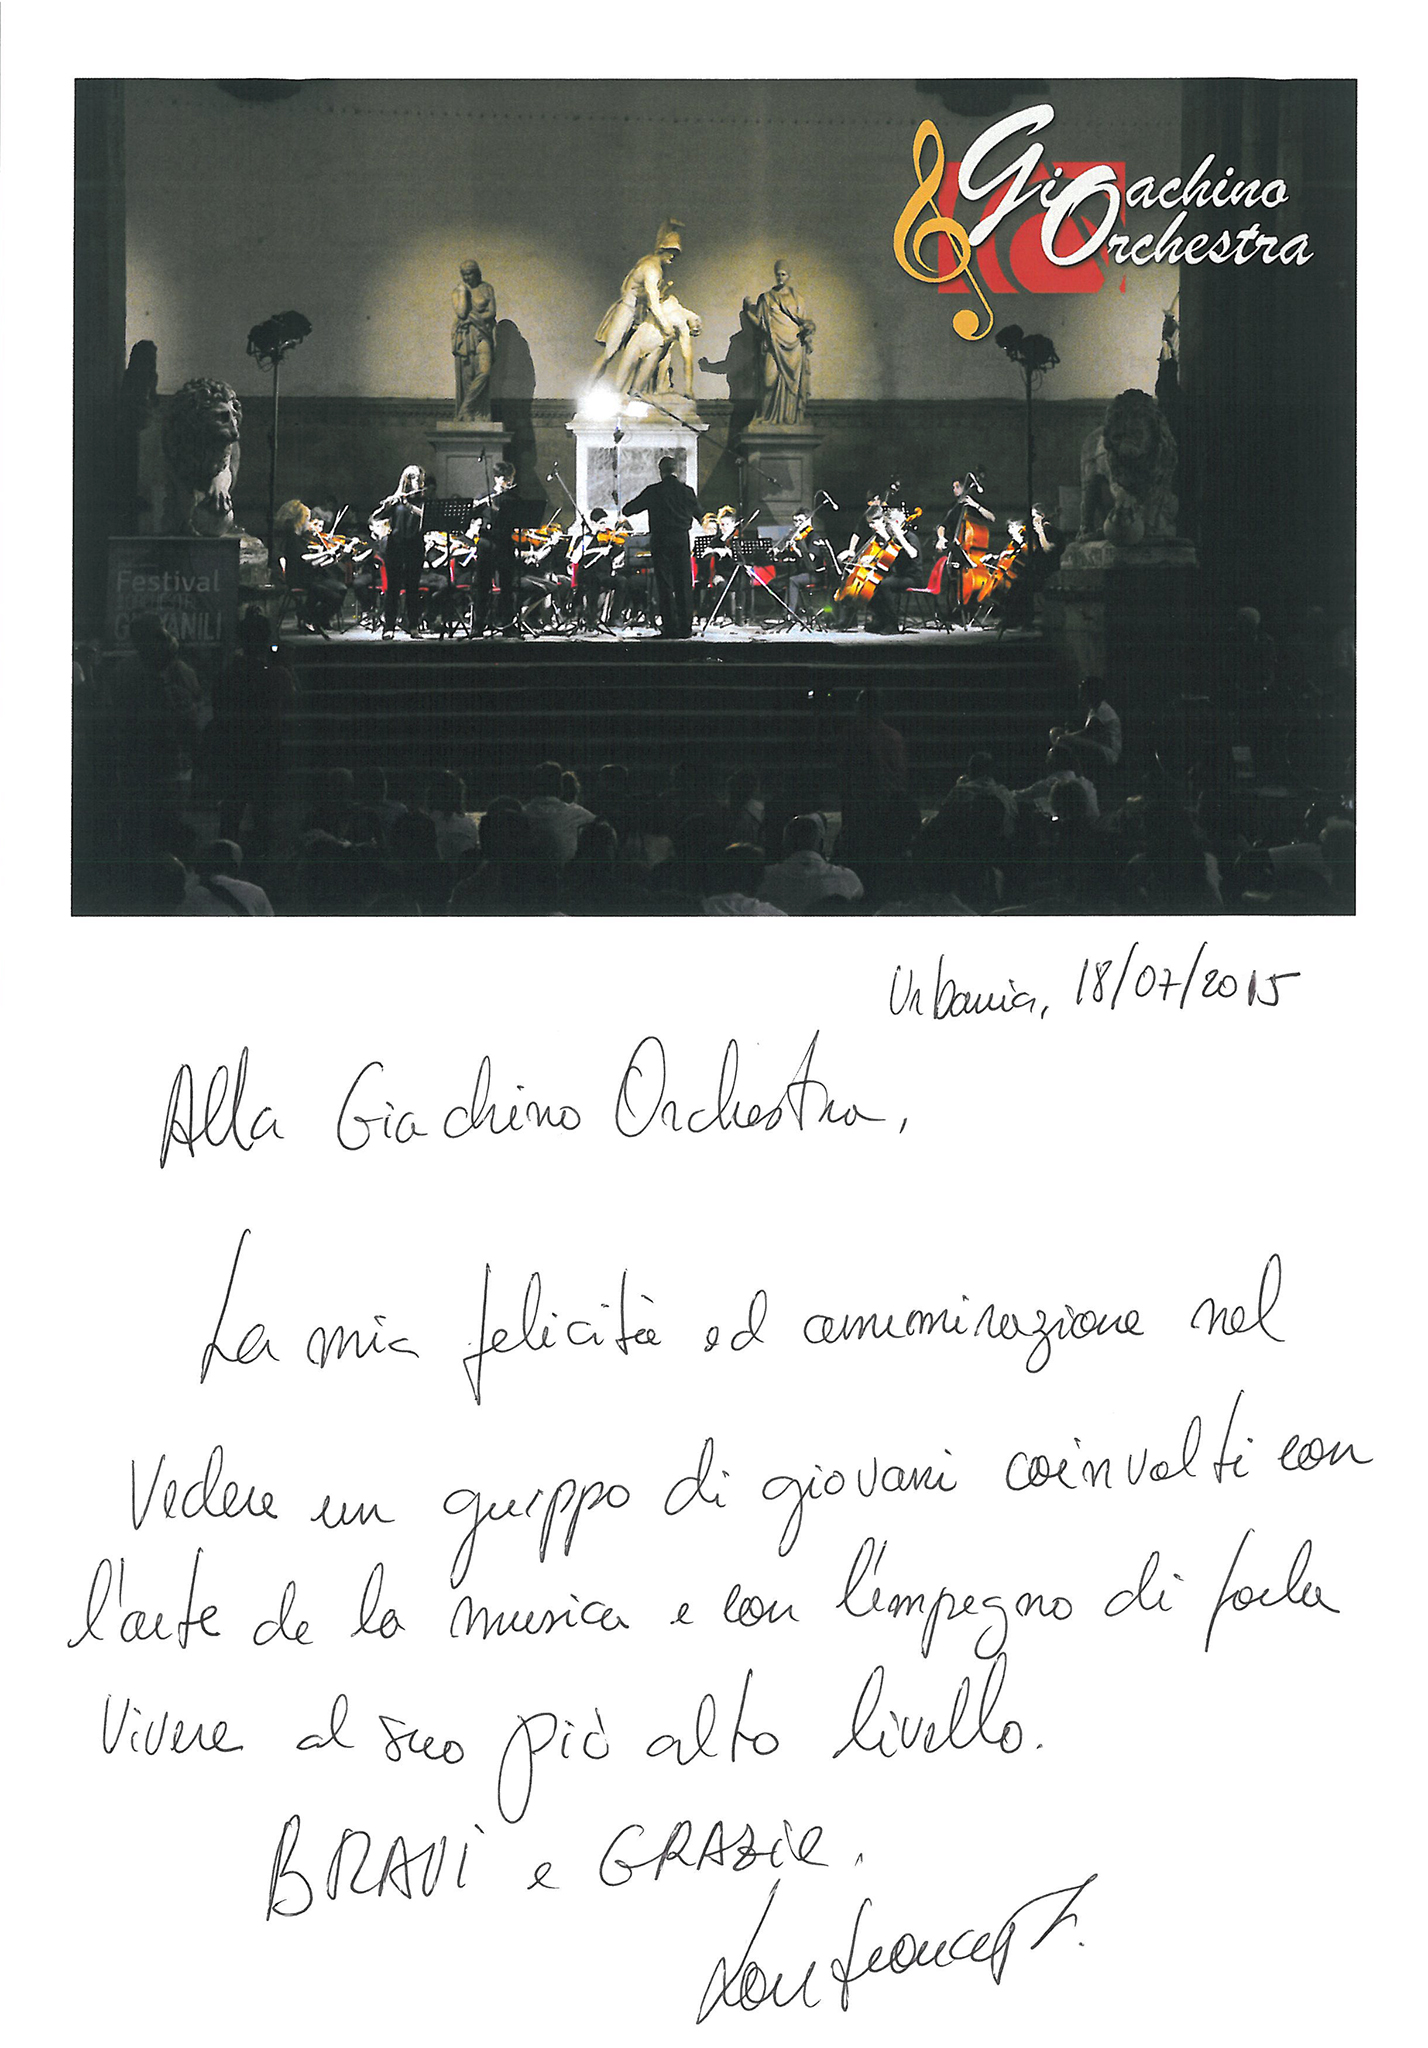 Gioachino
Orchestra
Festival
GIOVANILI
Urbania, 18/07/2015
Alla Giachino Orchestra,
La mia felicità ed ammirazione nel
Vedere un gruppo di giovani coinvolti con
l'arte de la musica e con l'empegno di farla
vivere al suo più alto livello.
BRAVI e GRAZIE.